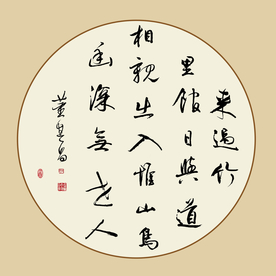 來過竹
里館日與道
相親出入惟山鳥
幽深無世人
董其昌